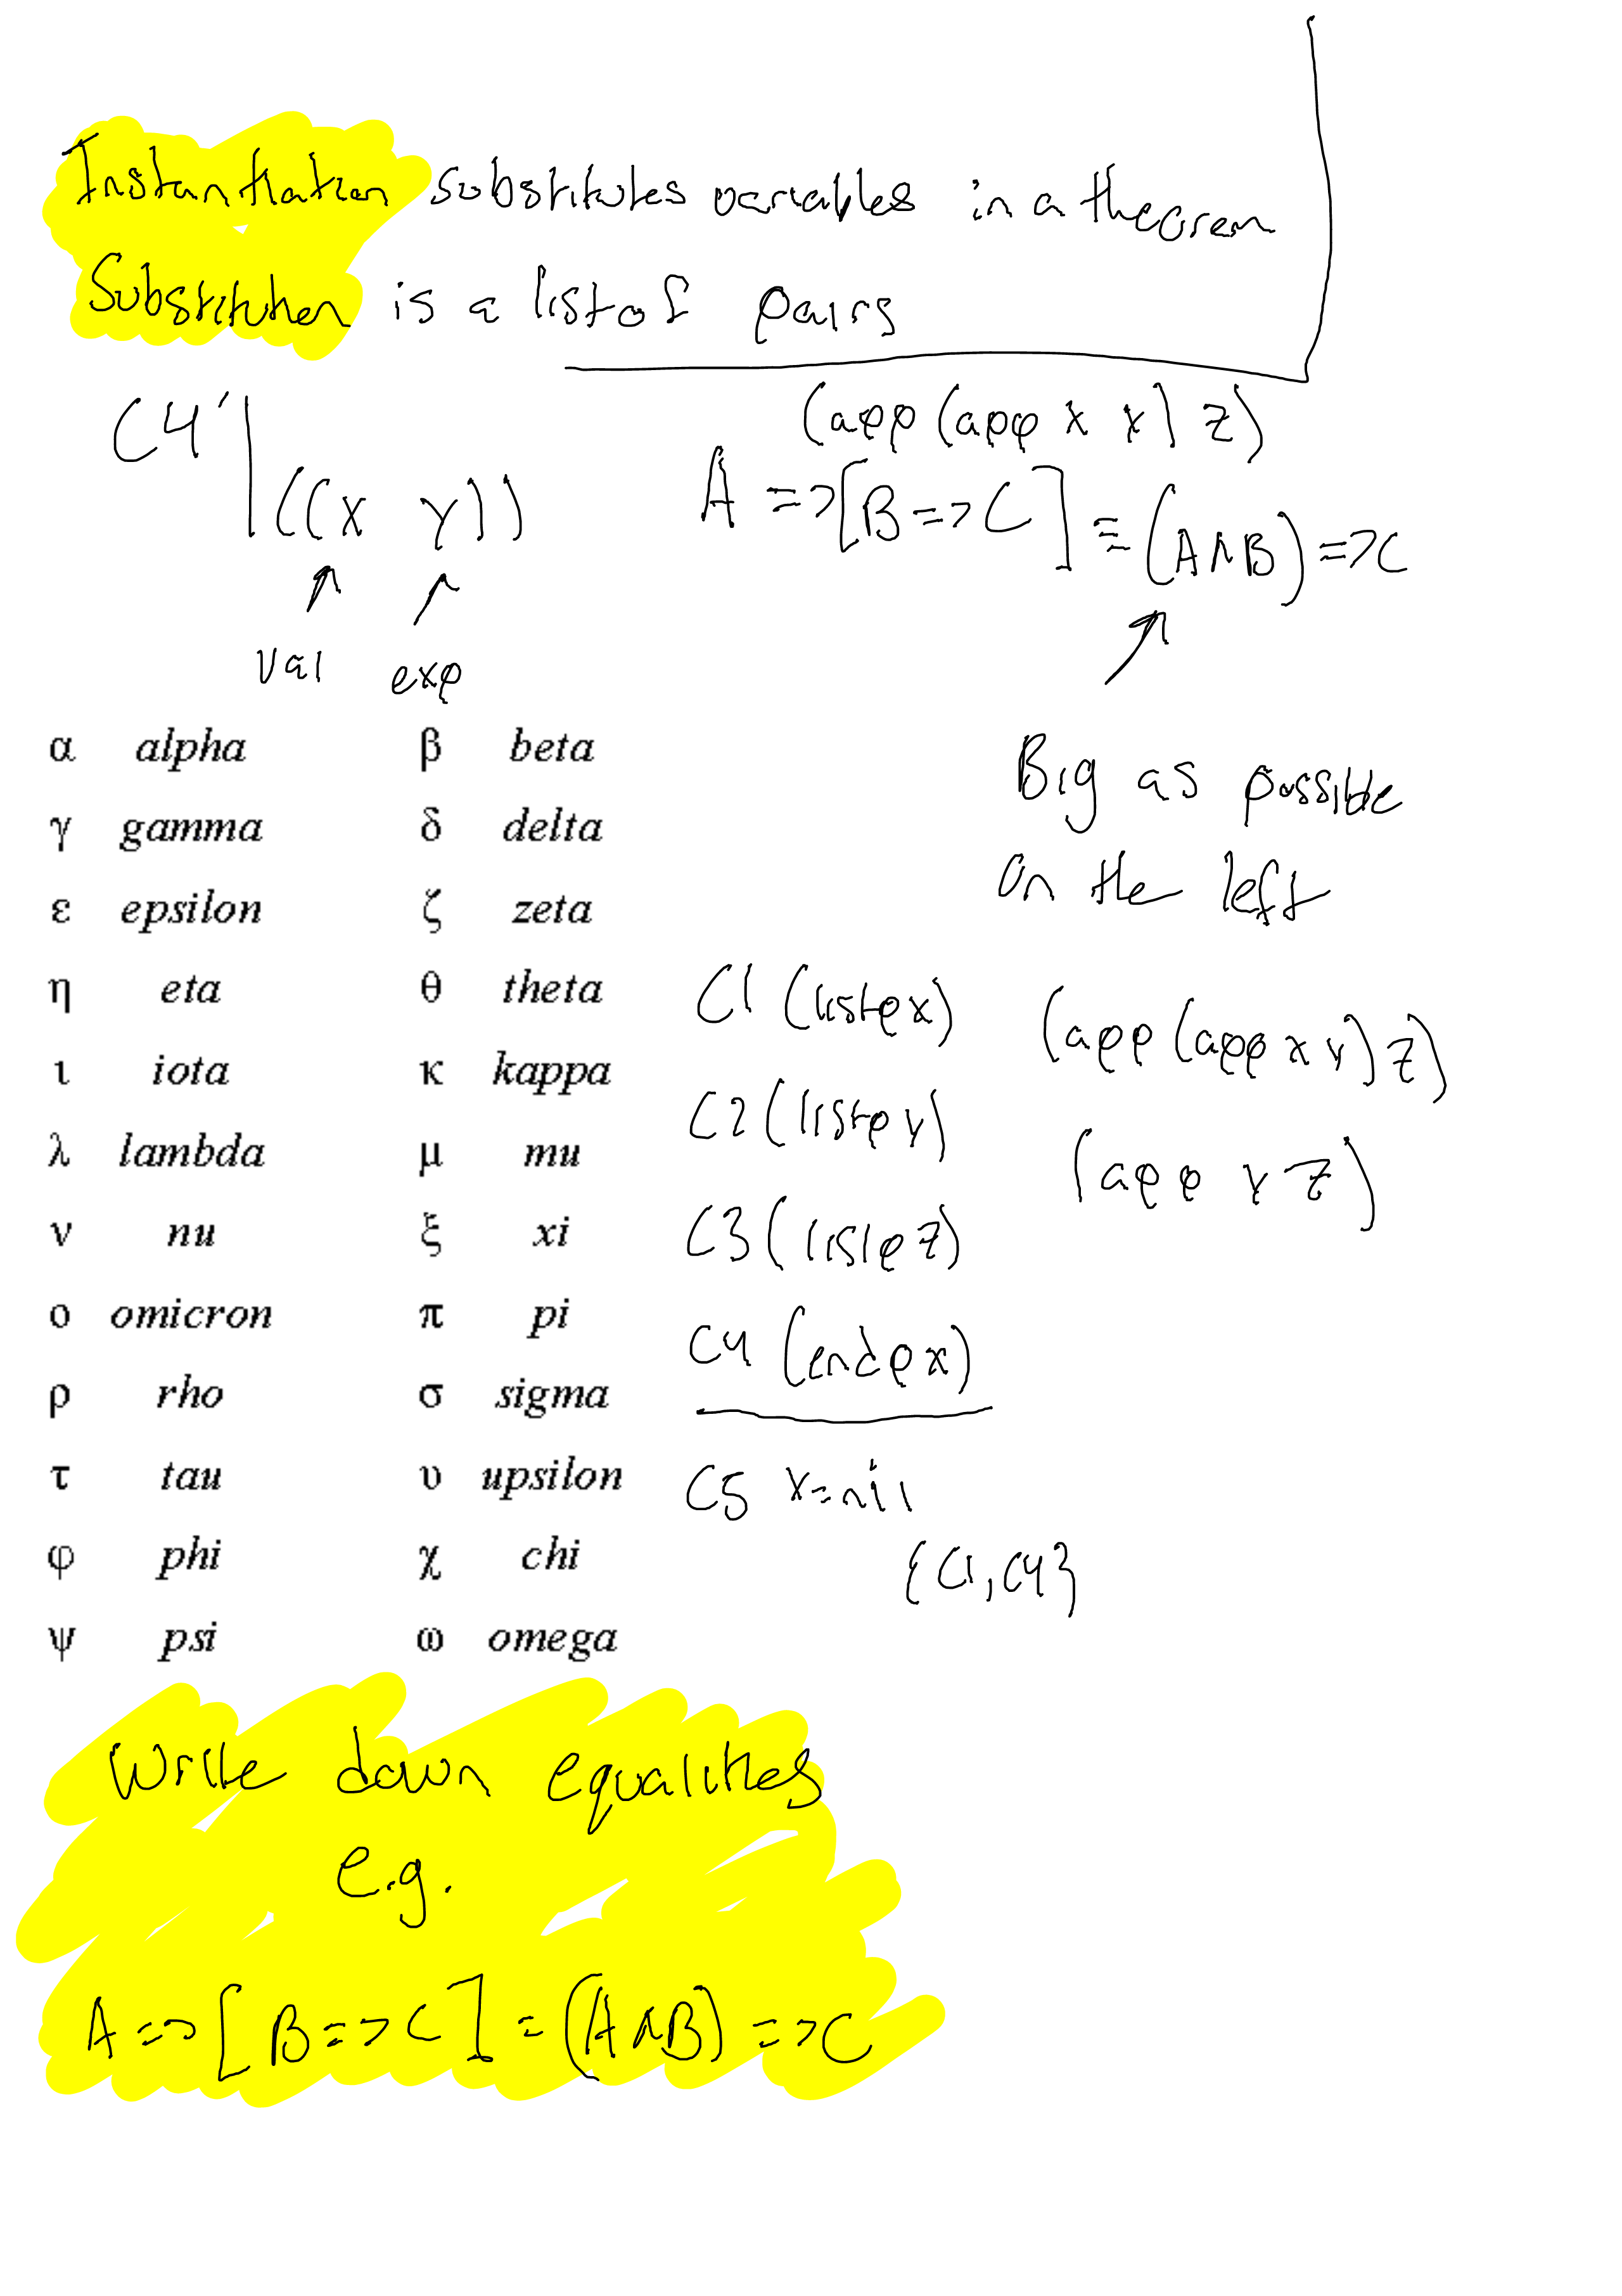 Instantiation substitutes variables in a theorem
Substitution is a list of pairs
C4'|((x y))
val exp
(app (app x x) z)
A => [B => C] ≡ (A ∧ B) => C
Big as possible
on the left
α alpha β beta
γ gamma δ delta
ε epsilon ζ zeta
η eta θ theta
ι iota κ kappa
λ lambda μ mu
ν nu ξ xi
ο omicron π pi
ρ rho σ sigma
τ tau υ upsilon
φ phi χ chi
ψ psi ω omega
C1 (listp x)
C2 (listp y)
C3 (listp z)
C4 (endp x)
C5 x=nil
{C1, C4}
(app (app x y) z)
(app y z)
Write down equalities
e.g.
A => [B => C] = (A ∧ B) => C